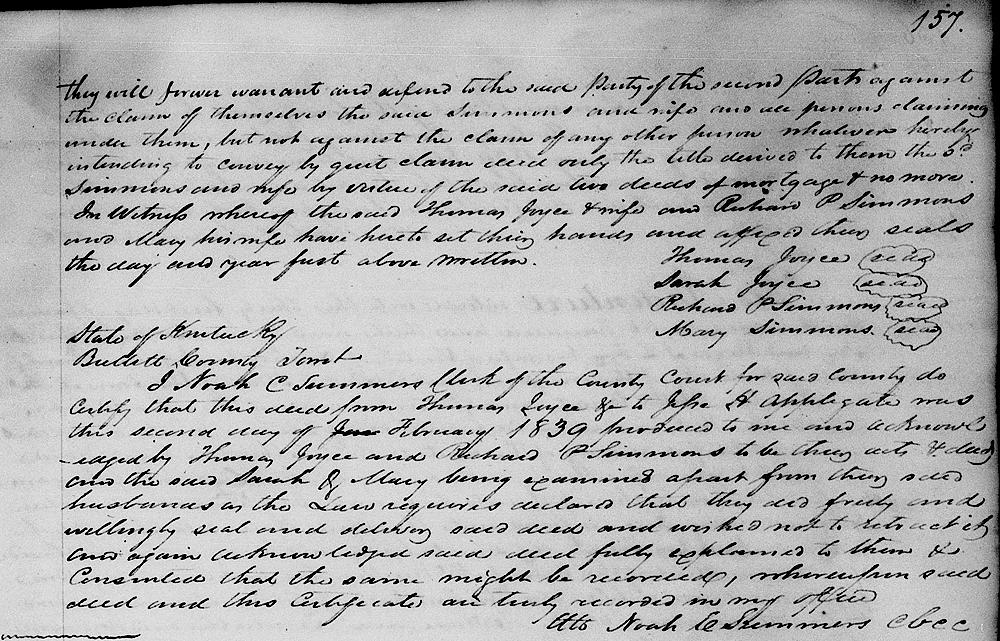 157.
they will forever warrant and defend to the said Party of the second Part against
the claim of themselves the said Simmons and wife and all persons claiming
under them, but not against the claim of any other person whatever hereby
intending to convey by quit claim deed only the title derived to them the sd
Simmons and wife by virtue of the said two deeds of mortgage & no more.
In Witness whereof the said Thomas Joyce & wife and Richard P Simmons
and Mary his wife have hereto set their hands and affixed their seals
the day and year first above written. Thomas Joyce (seal)
Sarah Joyce (seal)
Richard P Simmons (seal)
Mary Simmons. (seal)
State of Kentucky
Bullitt County Towit
I Noah C Summers Clerk of the County Court for said County do
Certify that this deed from Thomas Joyce &c to Jesse H Applegate was
this second day of February 1839 produced to me and acknowl
-edged by Thomas Joyce and Richard P Simmons to be their acts & deed
and the said Sarah & Mary being examined apart from their said
husbands as the Law requires declared that they did freely and
willingly seal and deliver said deed and wished not to retract it,
and again acknowledged said deed fully explained to them &
Consented that the same might be recorded, whereupon said
deed and this Certificate are truly recorded in my office
Atto Noah C Summers C B C C